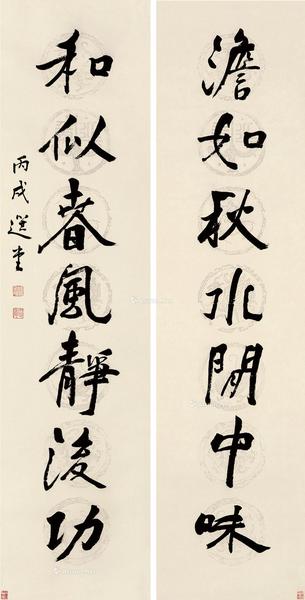 澹如秋水閒中味
和似春風靜後功
丙戌選堂